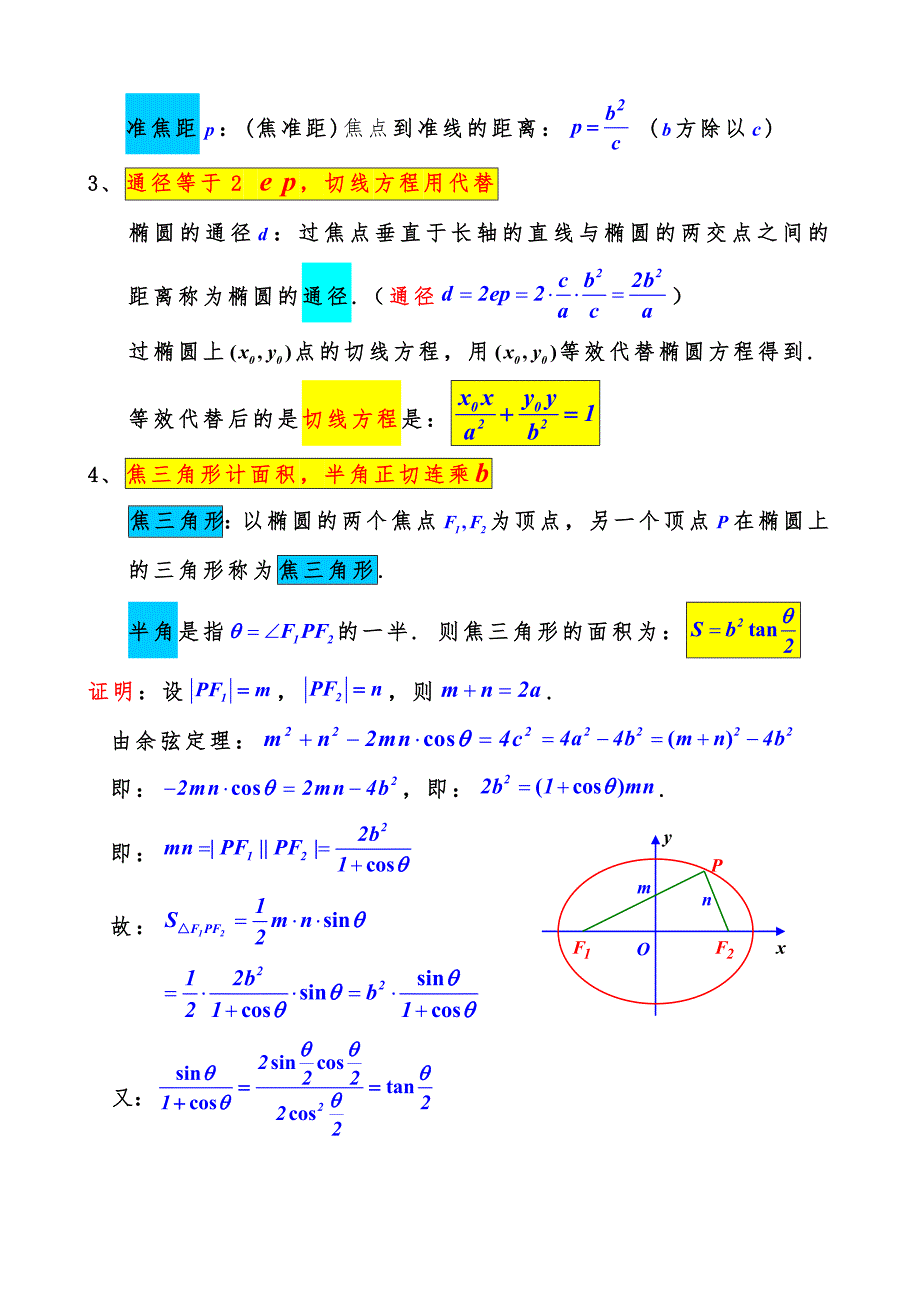 准焦距p：(焦准距)焦点到准线的距离： p=b²/c (b方除以c)
3、通径等于2 e p，切线方程用代替
椭圆的通径d：过焦点垂直于长轴的直线与椭圆的两交点之间的
距离称为椭圆的通径.（通径d=2ep=2·c/a·b²/c=2b²/a）
过椭圆上(x₀,y₀)点的切线方程，用(x₀,y₀)等效代替椭圆方程得到.
等效代替后的是切线方程是：x₀x/a²+y₀y/b²=1
4、焦三角形计面积，半角正切连乘b
焦三角形：以椭圆的两个焦点F₁,F₂为顶点，另一个顶点P在椭圆上
的三角形称为焦三角形.
半角是指θ=∠F₁PF₂的一半. 则焦三角形的面积为：S=b²tan θ/2
证明：设|PF₁|=m，|PF₂|=n，则m+n=2a.
由余弦定理：m²+n²−2mn·cosθ=4c²=4a²−4b²=(m+n)²−4b²
即：−2mn·cosθ=2mn−4b²，即：2b²=(1+cosθ)mn.
即：mn=|PF₁||PF₂|=2b²/(1+cosθ)
故：S△F₁PF₂=1/2 m·n·sinθ
=1/2·2b²/(1+cosθ)·sinθ=b²·sinθ/(1+cosθ)
又：sinθ/(1+cosθ)=(2sin θ/2 cos θ/2)/(2cos² θ/2)=tan θ/2
y
P
m
n
F₁
O
F₂
x